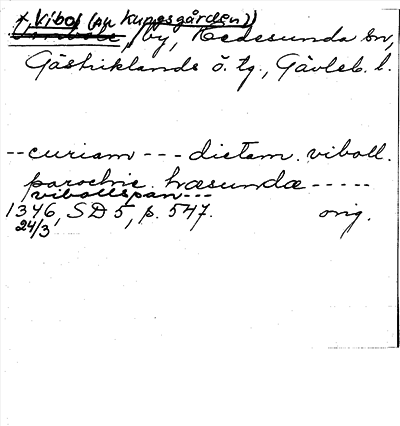 *Vibol (nu Kuppsgården?)
by, Hedesunda sn,
Gästriklands ö. tg., Gävleb. l.
-- curiam --- dictam. viboll.
parochie. hæsundæ -----
vibollspan ---
1346, SD 5, p. 547. orig.
24/3